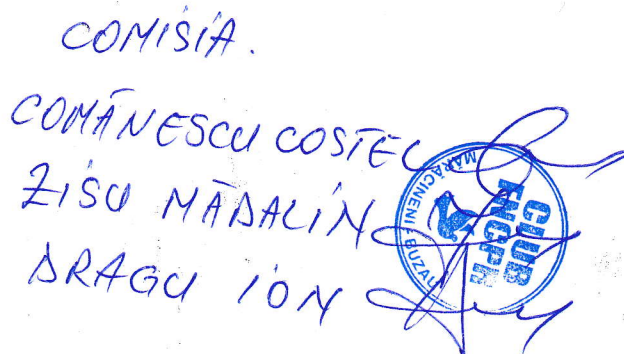 COMISIA.
COMĂNESCU COSTEL
ZISU MĂDALIN
DRAGU ION
CLUB
FNCPR
MĂRĂCINENI - BUZĂU